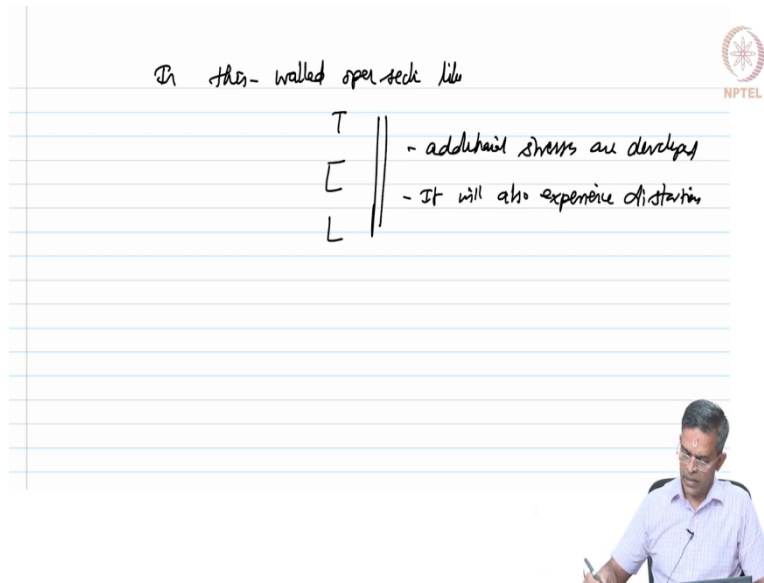 In thin-walled open secti like
NPTEL
T
[
L
- additional stresses are developed
- It will also experience distortion